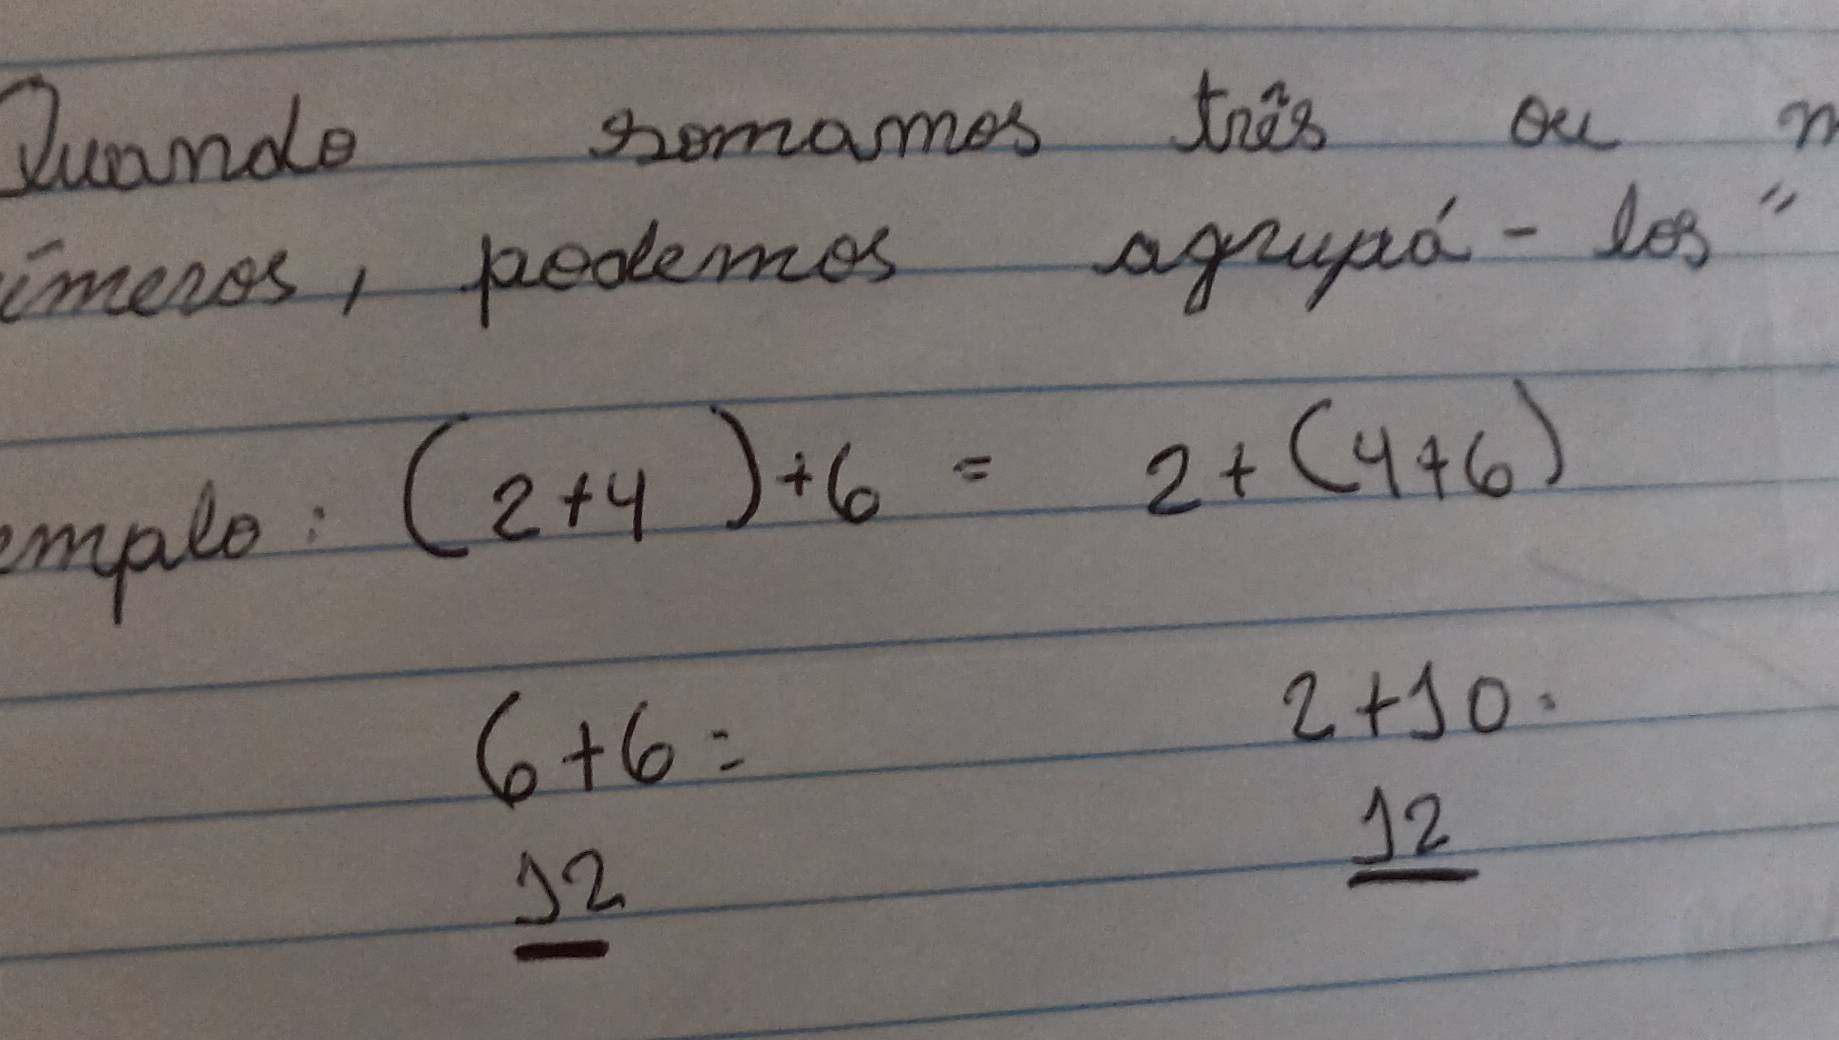 Quando somamos três ou m
úmeros, podemos agrupá-los"
emplo: (2+4)+6 = 2+(4+6)
6+6= 2+10=
12 12